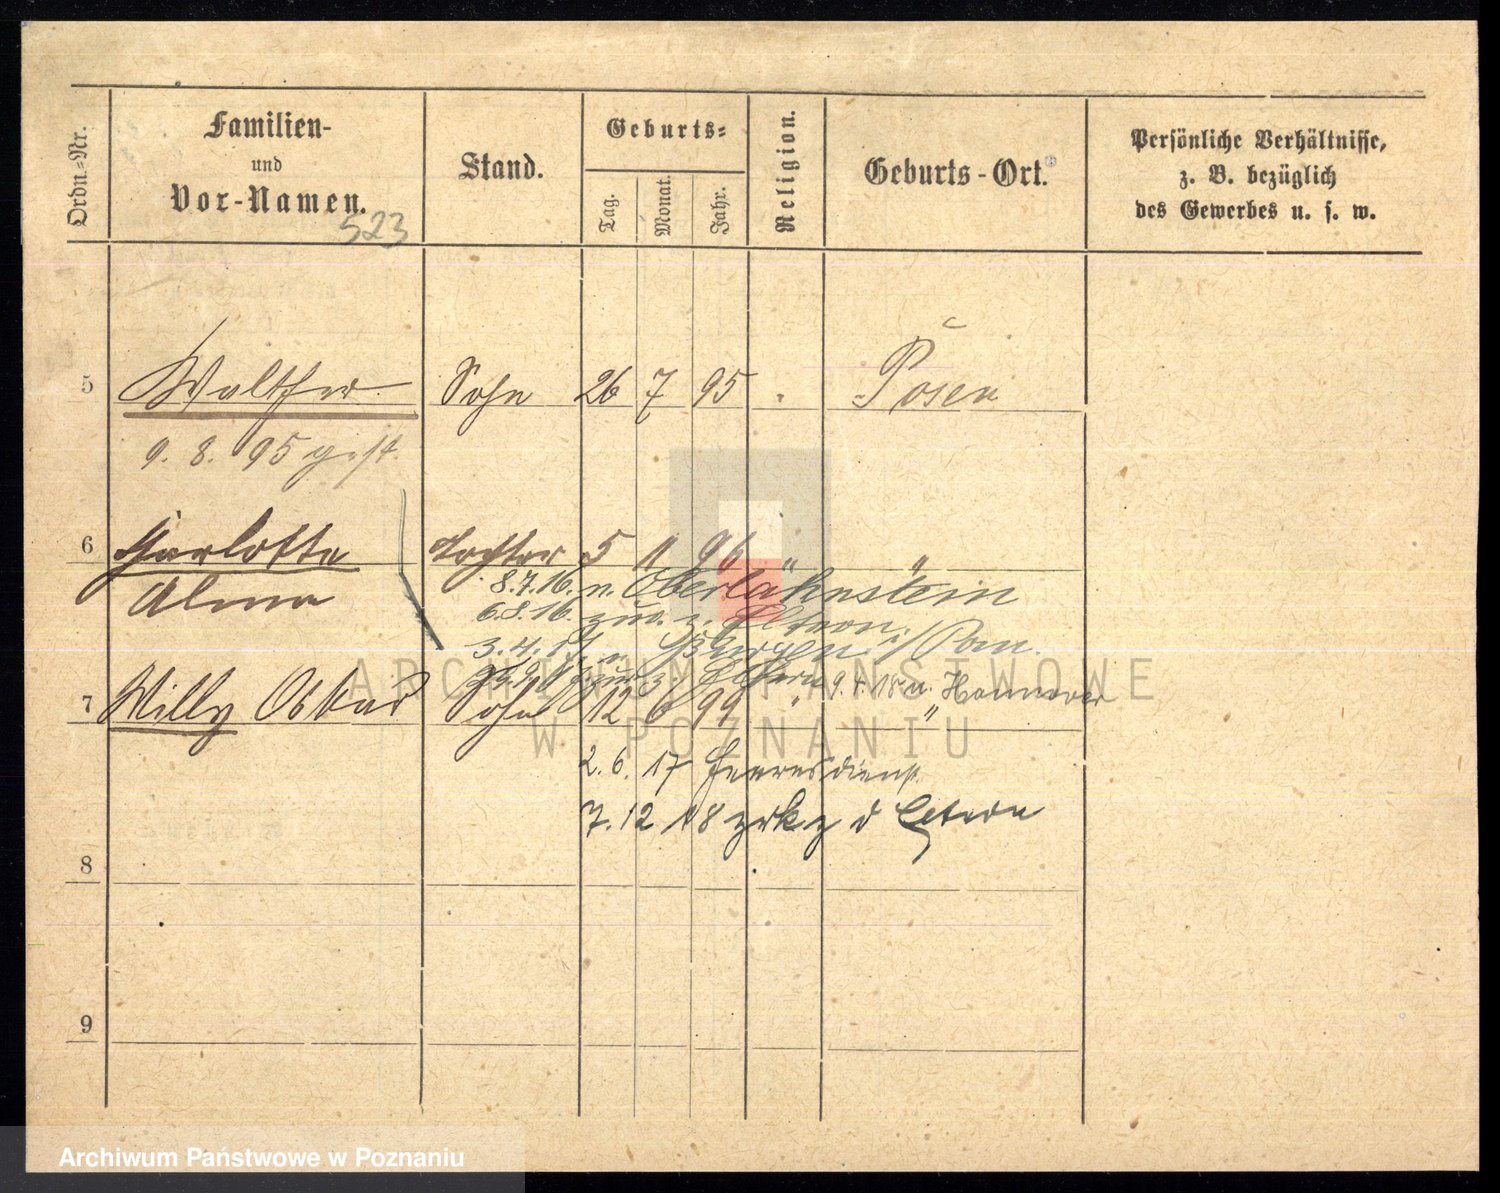 Ordn.-Nr.
Familien-
und
Vor-Namen.
523
Stand.
Geburts-
Tag.
Monat.
Jahr.
Religion.
Geburts-Ort.
Persönliche Verhältnisse,
z. B. bezüglich
des Gewerbes u. s. w.
5 Walther Sohn 26 7 95 Posen
9. 8. 95 gest.
6 Charlotte Tochter 5 11 96 " "
Alma
8.7.16. n. Oberlahnstein
6.8.16. zur. z. Eltern.
3.4.17. n. i/Pom.
z. Eltern 9.4.18 n. Hannover
7 Willy Oskar Sohn 12 6 99 " "
2. 6. 17 Heeresdienst
7. 12 18 zrk z d Eltern
8
9
ARCHIWUM PAŃSTWOWE
W POZNANIU
Archiwum Państwowe w Poznaniu